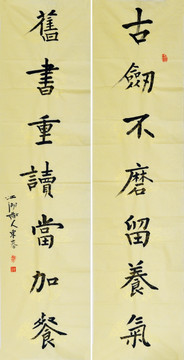 古劒不磨留養氣
舊書重讀當加餐